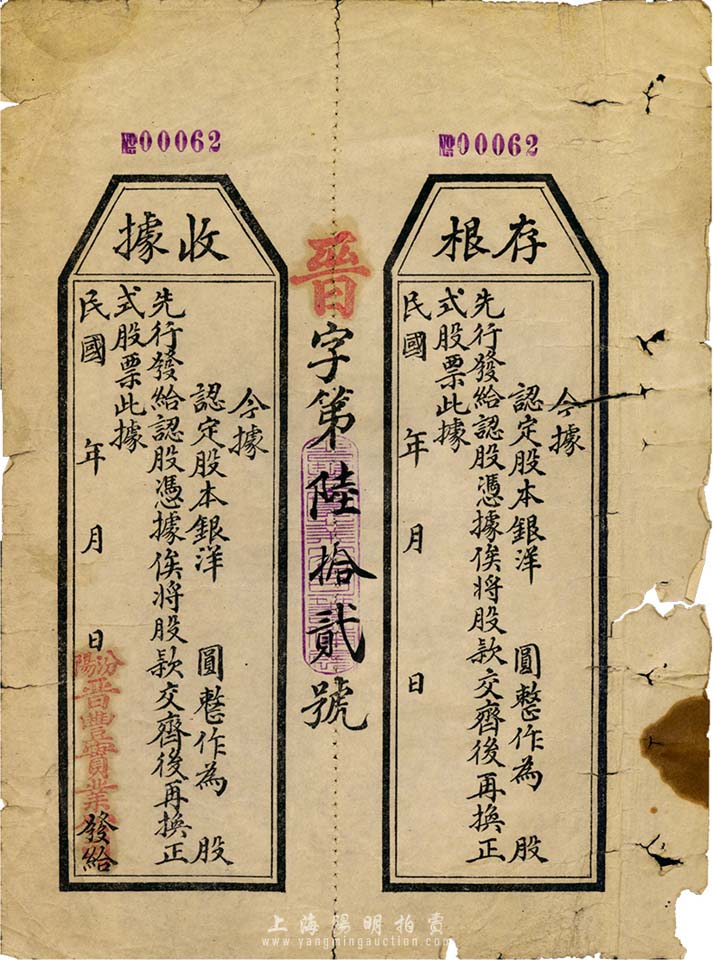 №00062
存根
今據
認定股本銀洋 圓整作為 股
先行發給認股憑據俟將股款交齊後再換正
式股票此據
民國 年 月 日
晉字第陸拾貳號
№00062
收據
今據
認定股本銀洋 圓整作為 股
先行發給認股憑據俟將股款交齊後再換正
式股票此據
民國 年 月 日
汾陽晉豐實業 發給
上海陽明拍賣
www.yangmingauction.com